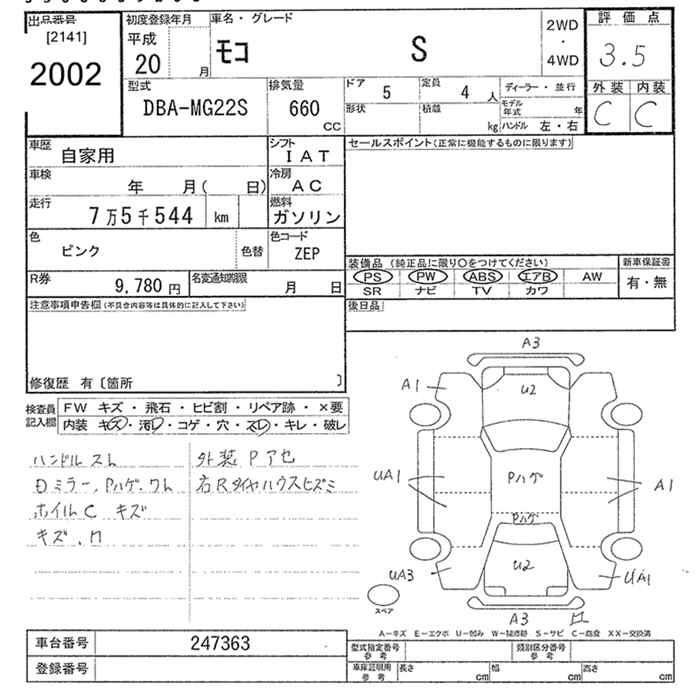 出品番号
[2141]
2002
初度登録年月
平成
20 月
車名・グレード
モコ S
2WD
・
4WD
評価点
3.5
外装 内装
C C
型式
DBA-MG22S
排気量
660
CC
ドア 5
定員 4 人
形状
積載 kg
ディーラー・並行
モデル年式 年
ハンドル 左・右
車歴
自家用
シフト
IAT
車検
年 月( 日)
冷房
AC
走行
7万5千544 km
燃料
ガソリン
色
ピンク
色替
色コード
ZEP
R券
9,780円
名変通知期限
月 日
セールスポイント(正常に機能するものに限ります)
装備品(純正品に限り○をつけてください)
PS PW ABS エアB AW
SR ナビ TV カワ
新車保証書
有・無
後日品
注意事項申告欄(不具合内容等は具体的に記入して下さい)
修復歴 有〔箇所 〕
検査員記入欄
FW キズ・飛石・ヒビ割・リペア跡・×要
内装 キズ・汚レ・コゲ・穴・スレ・キレ・破レ
ハンドルスレ
Dミラー、Pハゲ、ワレ
ホイルC キズ
キズ、
外装 Pアセ
右Rタイヤハウスヒズミ
A3
A1
U2
UA1
Pハゲ
A1
Pハゲ
UA3
U2
UA1
A3
スペア
A-キズ E-エクボ U-凹み W-補修跡 S-サビ C-腐食 XX-交換済
車台番号 247363
登録番号
型式指定番号
参考
類別区分番号
参考
車庫証明用
参考
長さ cm
幅 cm
高さ cm